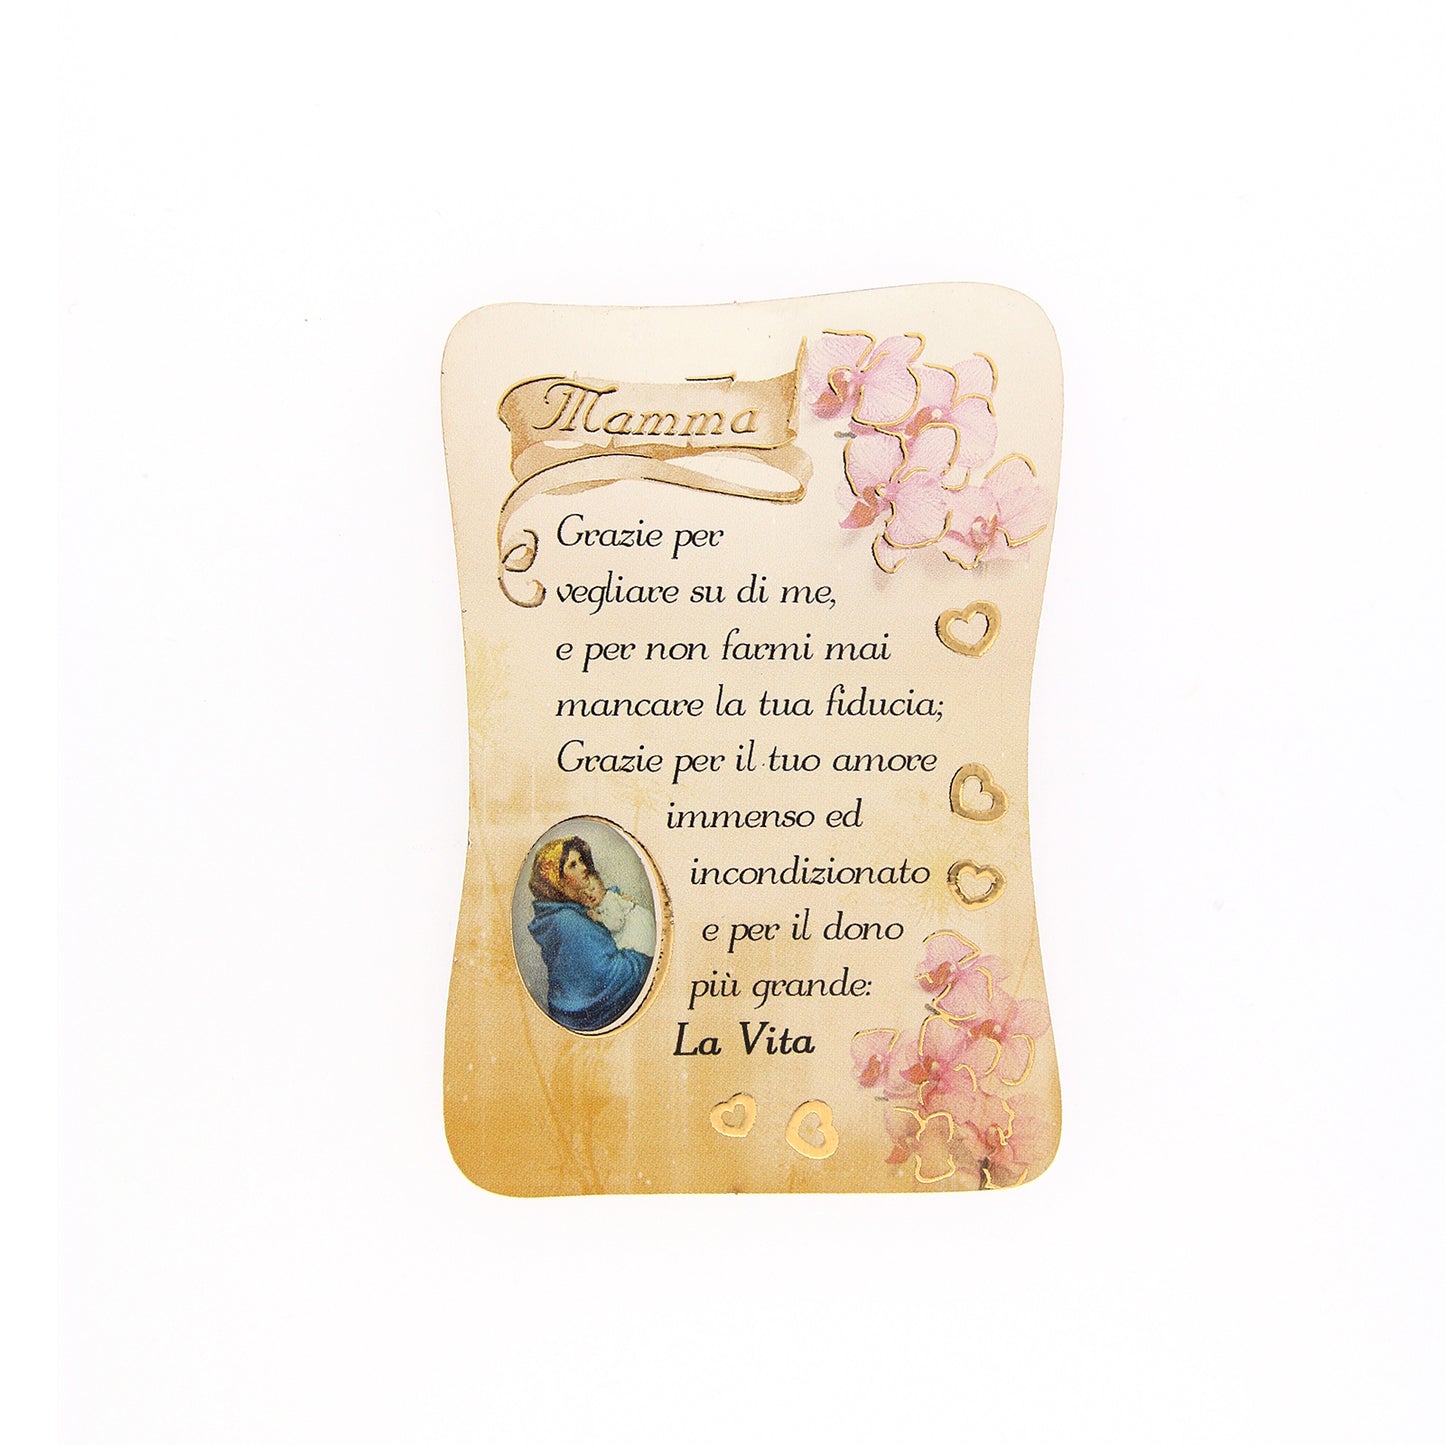 Mamma
Grazie per
vegliare su di me,
e per non farmi mai
mancare la tua fiducia;
Grazie per il tuo amore
immenso ed
incondizionato
e per il dono
più grande:
La Vita